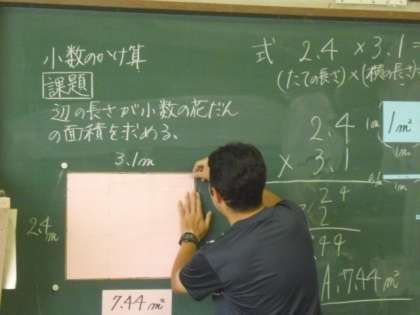 小数のかけ算
課題
辺の長さが小数の花だん
の面積を求める、
3.1m
2.4m
7.44m²
式 2.4 × 3.1 =
(たての長さ)×(横の長さ)
2.4
× 3.1
2 4
2
44
A.7.44m²
1m
1m²
1m